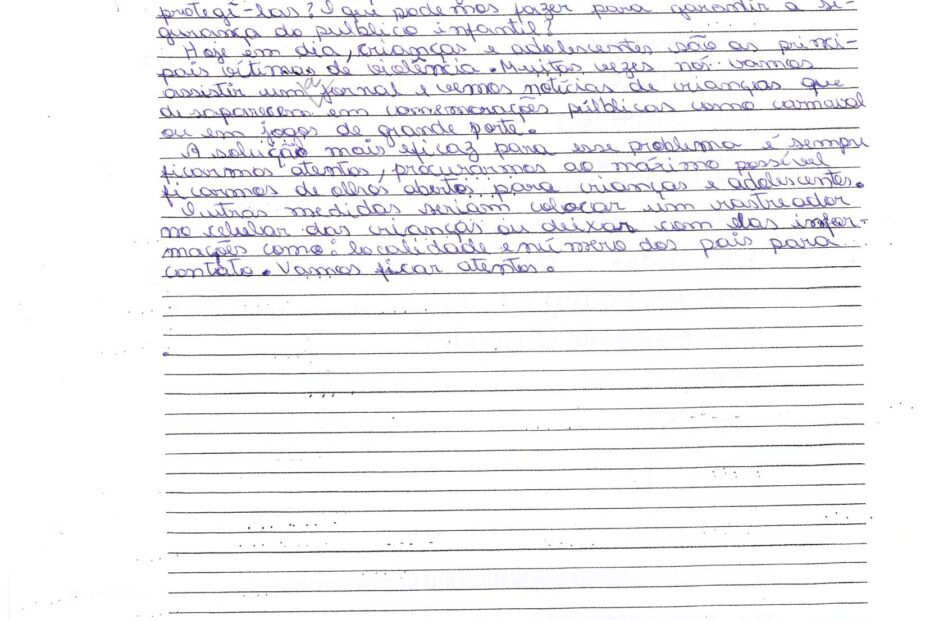 protegê-las? O que podemos fazer para garantir a se-
gurança do público infantil?
Hoje em dia, crianças e adolescentes são as princi-
pais vítimas de violência. Muitas vezes nós vamos
assistir um a jornal e vemos notícias de crianças que
desaparecem em comemorações públicas como carnaval
ou em jogos de grande porte.
A solução mais eficaz para esse problema é sempre
ficarmos atentos, procurarmos ao máximo possível
ficarmos de olhos abertos para crianças e adolescentes.
Outras medidas seriam colocar um rastreador
no celular das crianças ou deixar com elas infor-
mações como: localidade e número dos pais para
contato. Vamos ficar atentos.